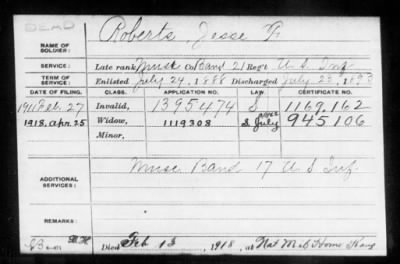 DEAD
NAME OF SOLDIER: Roberts, Jesse F
SERVICE: Late rank Musc Co Band 21 Reg't U S Inf
TERM OF SERVICE: Enlisted July 24, 1888 Discharged July 23, 1893
DATE OF FILING. CLASS. APPLICATION NO. LAW. CERTIFICATE NO.
1911 Feb. 27 Invalid, 1395474 S 1169,162
1918, Apr. 25 Widow, 1119308 S July 945,106
Minor,
ADDITIONAL SERVICES: Musc Band 17 U S Inf
REMARKS:
Died Feb 13, 1918, at Nat M. B. Home Kans